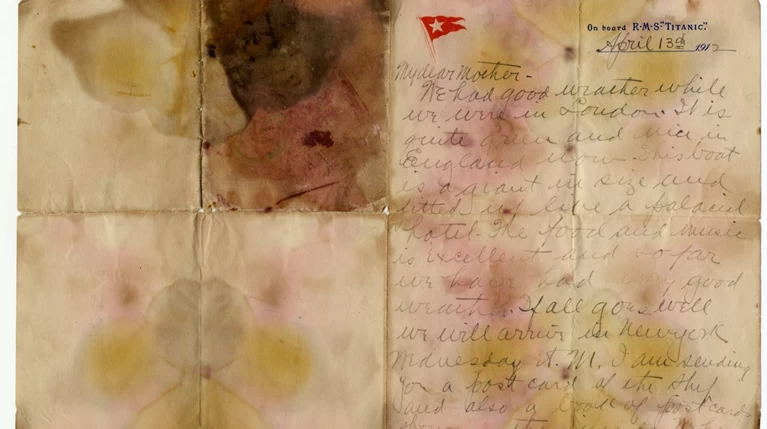 On board R·M·S "TITANIC".
April 13th 1912
My dear Mother -
We had good weather while
we were in London. It is
quite green and nice in
England now. This boat
is a giant in size and
fitted up like a palacial
hotel. The food and music
is excellent and so far
we have had very good
weather. If all goes well
we will arrive in New York
Wednesday A.M. I am sending
you a post card of the ship
and also a book of postcards